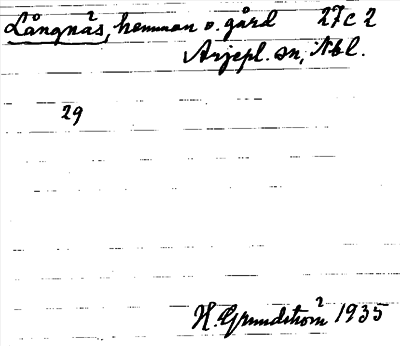 Långnäs, hemman o. gård 27c2
Arjepl. sn, Nbl.
29
H. Grundström 1935